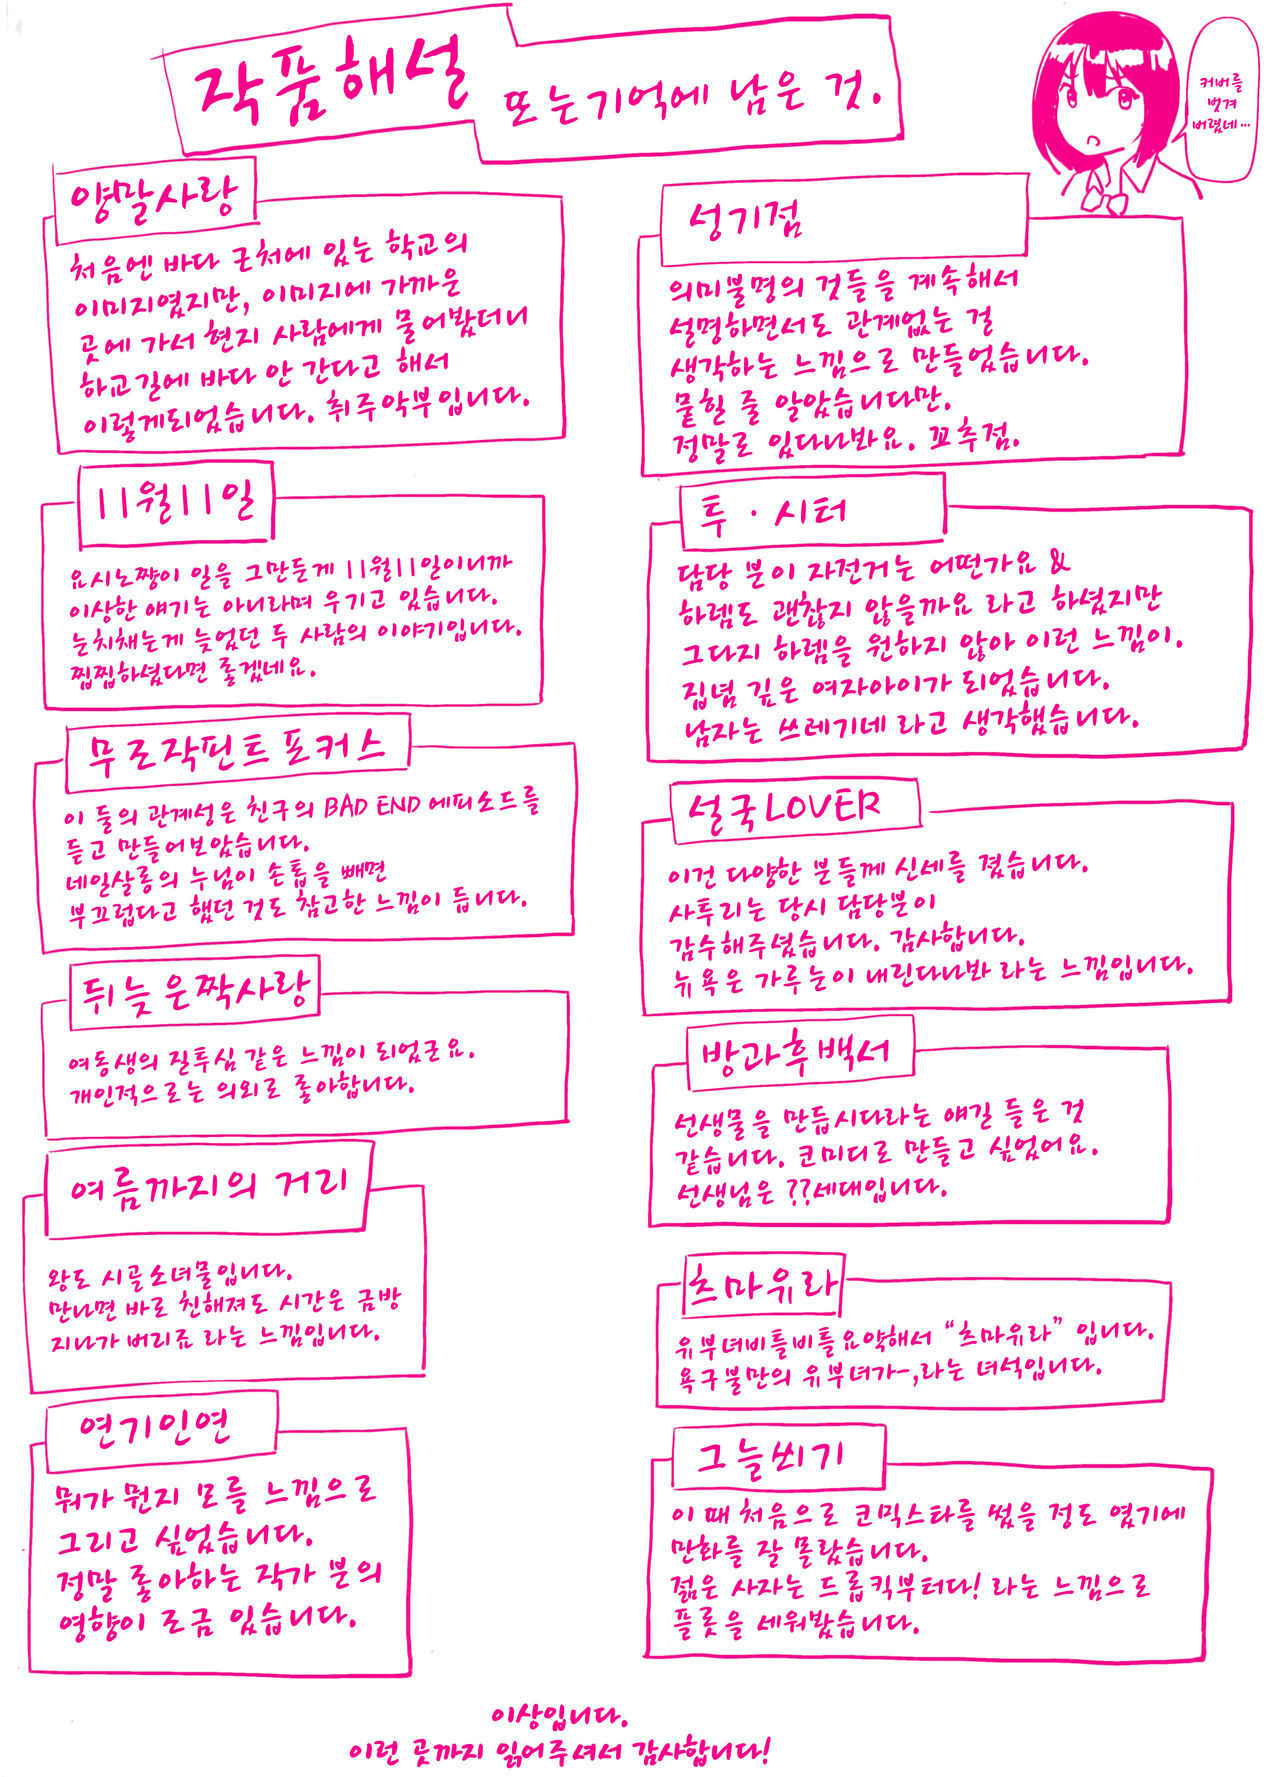 작품해설
또는 기억에 남은 것.
커버를
벗겨
버렸네...
양말사랑
처음엔 바다 근처에 있는 학교의
이미지였지만, 이미지에 가까운
곳에 가서 현지 사람에게 물어봤더니
하교길에 바다 안 간다고 해서
이렇게되었습니다. 취주악부입니다.
11월11일
요시노쨩이 일을 그만둔게 11월11일이니까
이상한 얘기는 아니라며 우기고 있습니다.
눈치채는게 늦었던 두 사람의 이야기입니다.
찝찝하셨다면 좋겠네요.
무로작핀트포커스
이 둘의 관계성은 친구의 BAD END 에피소드를
듣고 만들어보았습니다.
네일살롱의 누님이 손톱을 빼면
부끄럽다고 했던 것도 참고한 느낌이 듭니다.
뒤늦은짝사랑
여동생의 질투심 같은 느낌이 되었군요.
개인적으로는 의외로 좋아합니다.
여름까지의 거리
왕도 시골소녀물입니다.
만나면 바로 친해져도 시간은 금방
지나가 버리죠 라는 느낌입니다.
연기인연
뭐가 뭔지 모를 느낌으로
그리고 싶었습니다.
정말 좋아하는 작가 분의
영향이 조금 있습니다.
성기점
의미불명의 것들을 계속해서
설명하면서도 관계없는 걸
생각하는 느낌으로 만들었습니다.
묻힐 줄 알았습니다만.
정말로 있다나봐요. 꼬추점.
투·시터
담당 분이 자전거는 어떤가요 &
하렘도 괜찮지 않을까요 라고 하셨지만
그다지 하렘을 원하지 않아 이런 느낌이.
집념 깊은 여자아이가 되었습니다.
남자는 쓰레기네 라고 생각했습니다.
설국LOVER
이건 다양한 분들께 신세를 졌습니다.
사투리는 당시 담당분이
감수해주셨습니다. 감사합니다.
뉴욕은 가루눈이 내린다나봐 라는 느낌입니다.
방과후백서
선생물을 만듭시다라는 얘길 들은 것
같습니다. 코미디로 만들고 싶었어요.
선생님은 ??세대입니다.
츠마유라
유부녀비틀비틀요약해서 "츠마유라" 입니다.
욕구불만의 유부녀가-,라는 녀석입니다.
그늘쐬기
이 때 처음으로 코믹스타를 썼을 정도 였기에
만화를 잘 몰랐습니다.
젊은 사자는 드롭킥부터다! 라는 느낌으로
플롯을 세워봤습니다.
이상입니다.
이런 곳까지 읽어주셔서 감사합니다!